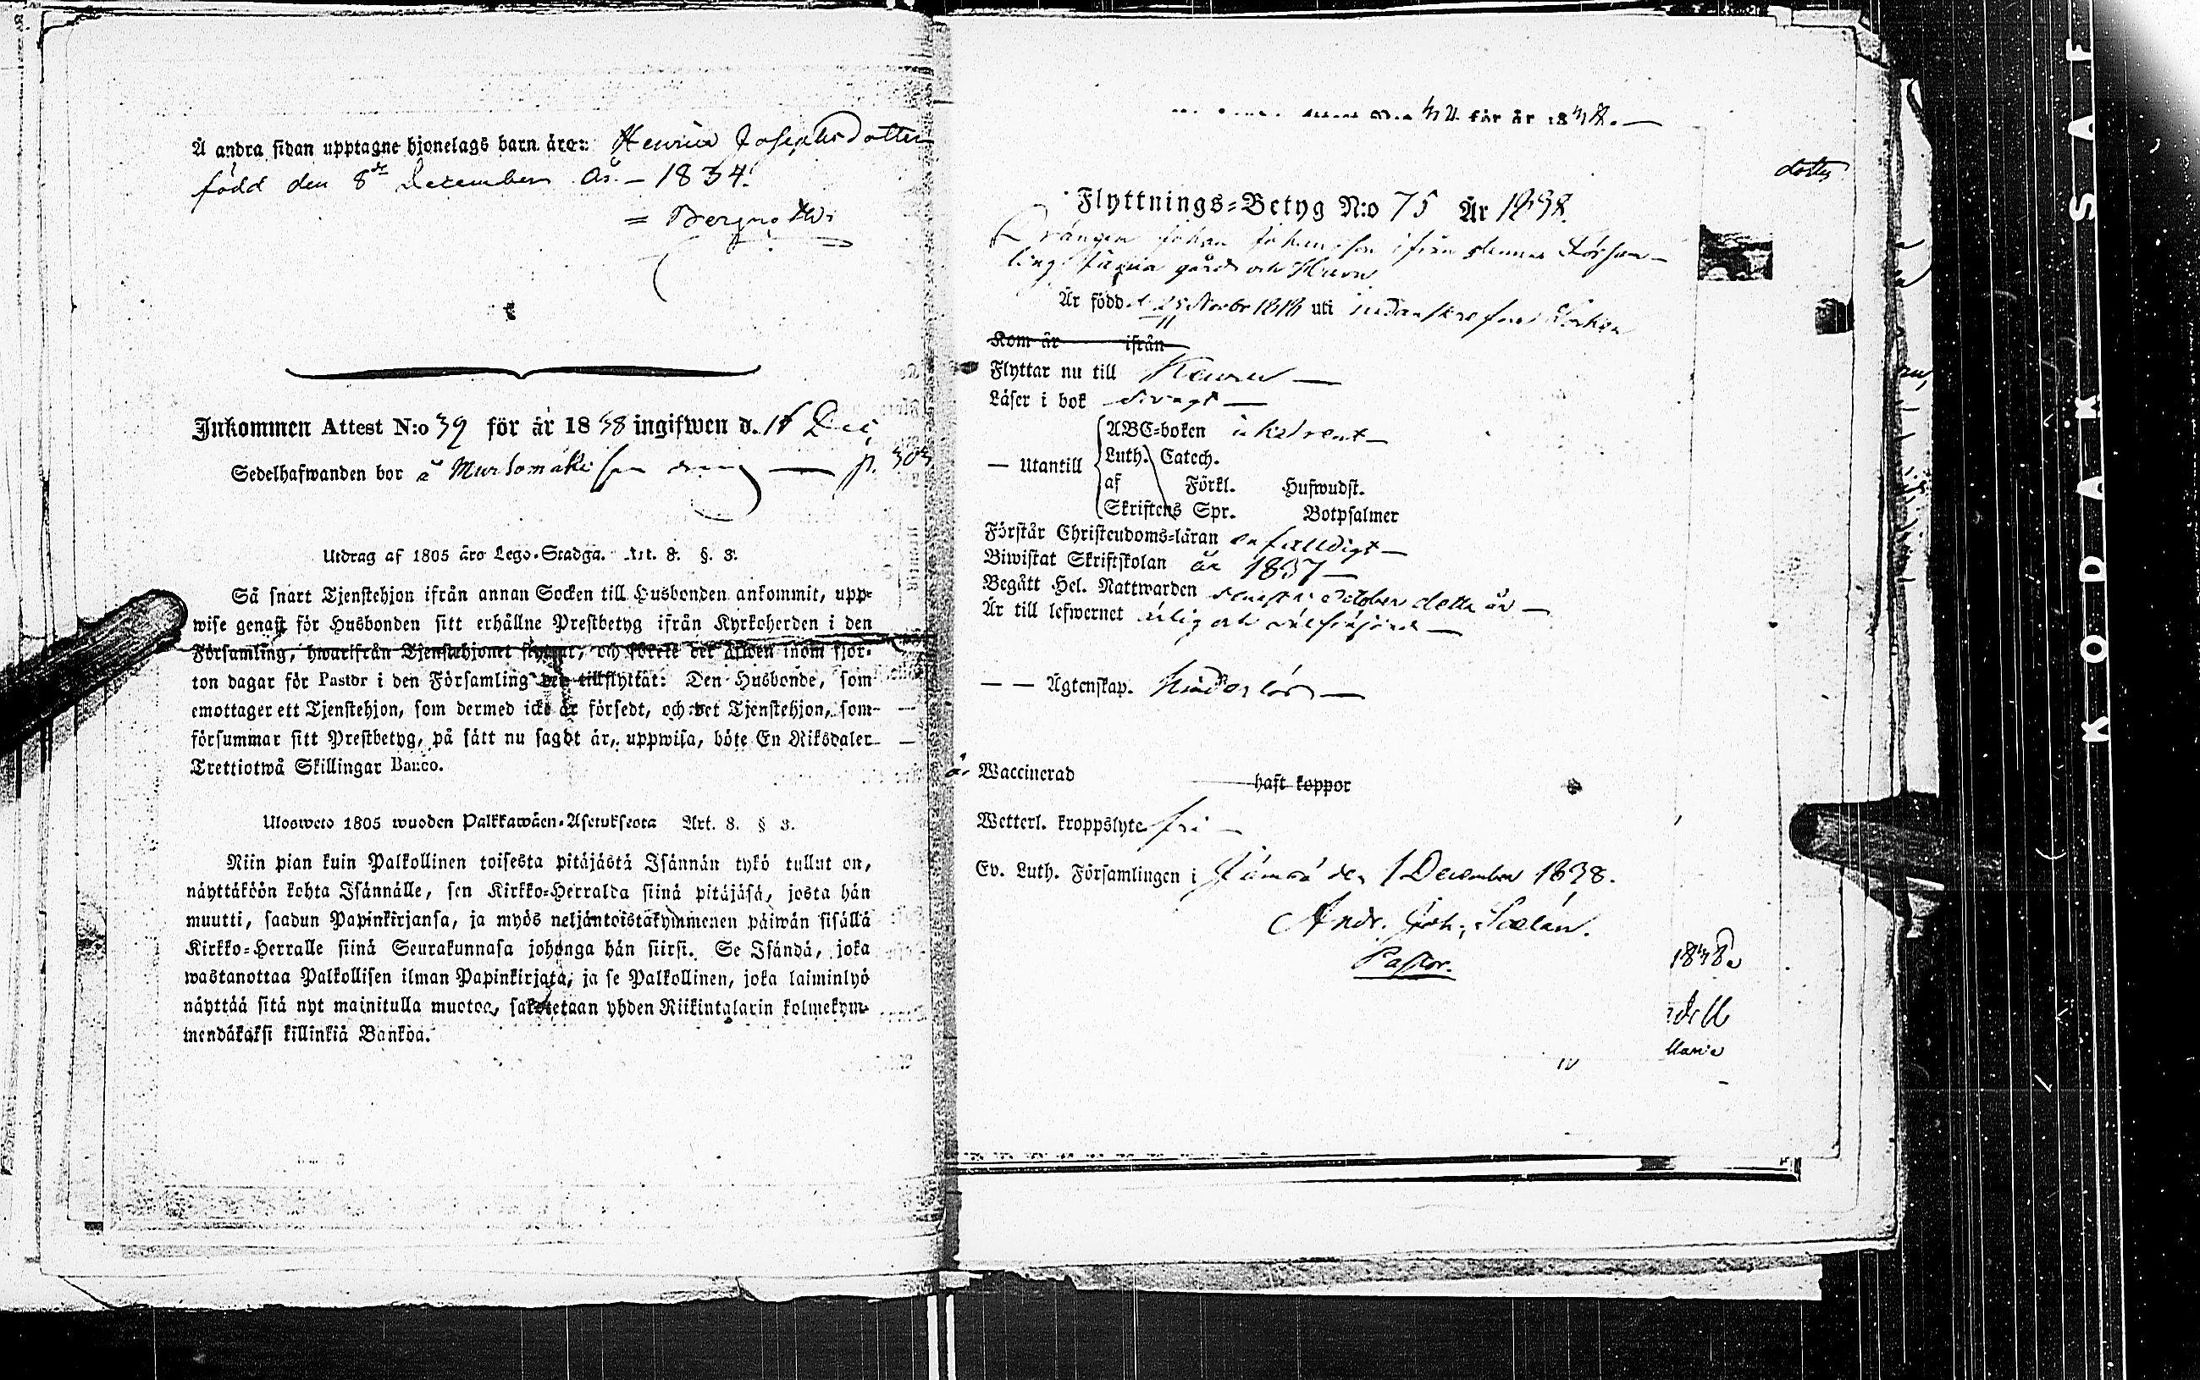 Å andra sidan upptagne hjonelags barn äro: Henrica Josephsdotter
född den 8de December År – 1834.
Inkommen Attest N:o 39 för år 1838 ingifwen d. 16 Dec
Sedelhafwanden bor å Murtomäki p. 303
Utdrag af 1805 års Lego-Stadga. Art. 8. §. 3.
Så snart Tjenstehjon ifrån annan Socken till Husbonden ankommit, upp-
wise genast för Husbonden sitt erhållne Prestbetyg ifrån Kyrkoherden i den
Församling, hwarifrån Tjenstehjonet flyttat, och förete det äfwen inom fjor-
ton dagar för Pastor i den Församling det tillflyttat: Den Husbonde, som
emottager ett Tjenstehjon, som dermed icke är försedt, och det Tjenstehjon, som
försummar sitt Prestbetyg, på sätt nu sagdt är, uppwisa, böte En Riksdaler
Trettiotwå Skillingar Banco.
Ulosweto 1805 wuoden Palkkawäen-Asetuksesta Art. 8. § 3.
Niin pian kuin Palkollinen toisesta pitäjästä Isännän tykö tullut on,
näyttäköön kohta Isännälle, sen Kirkko-Herralda siinä pitäjäsä, josta hän
muutti, saadun Papinkirjansa, ja myös neljäntoistakymmenen päiwän sisällä
Kirkko-Herralle siinä Seurakunnasa johonga hän siirsi. Se Isändä, joka
wastanottaa Palkollisen ilman Papinkirjata, ja se Palkollinen, joka laiminlyö
näyttää sitä nyt mainitulla muotoa, sakotetaan yhden Riikintalarin kolmekym-
mendäkaksi killinkiä Bankoa.
för år 1838.
dotter
Flyttnings-Betyg N:o 75 År 1838.
Drängen Johan Johansson ifrån denna Församling
gård och Hemn
Är född d. 25 Novbr 1818 uti
Kom år ifrån
Flyttar nu till Keuru
Läser i bok svagt
— Utantill
ABC-boken
Luth. Catech.
af Förkl. Hufwudst.
Skriftens Spr. Botpsalmer
Förstår Christendoms-läran enfalldigt
Biwistat Skriftskolan år 1837
Begått Hel. Nattwarden senast i October detta år
Är till lefwernet ärlig och
— — Ägtenskap. hinderlös
är Waccinerad haft koppor
Wetterl. kroppslyte fri
Ev. Luth. Församlingen i Jämsä den 1 December 1838.
Andr. Joh.
Pastor.
1838
Maria
KODAK SAFE